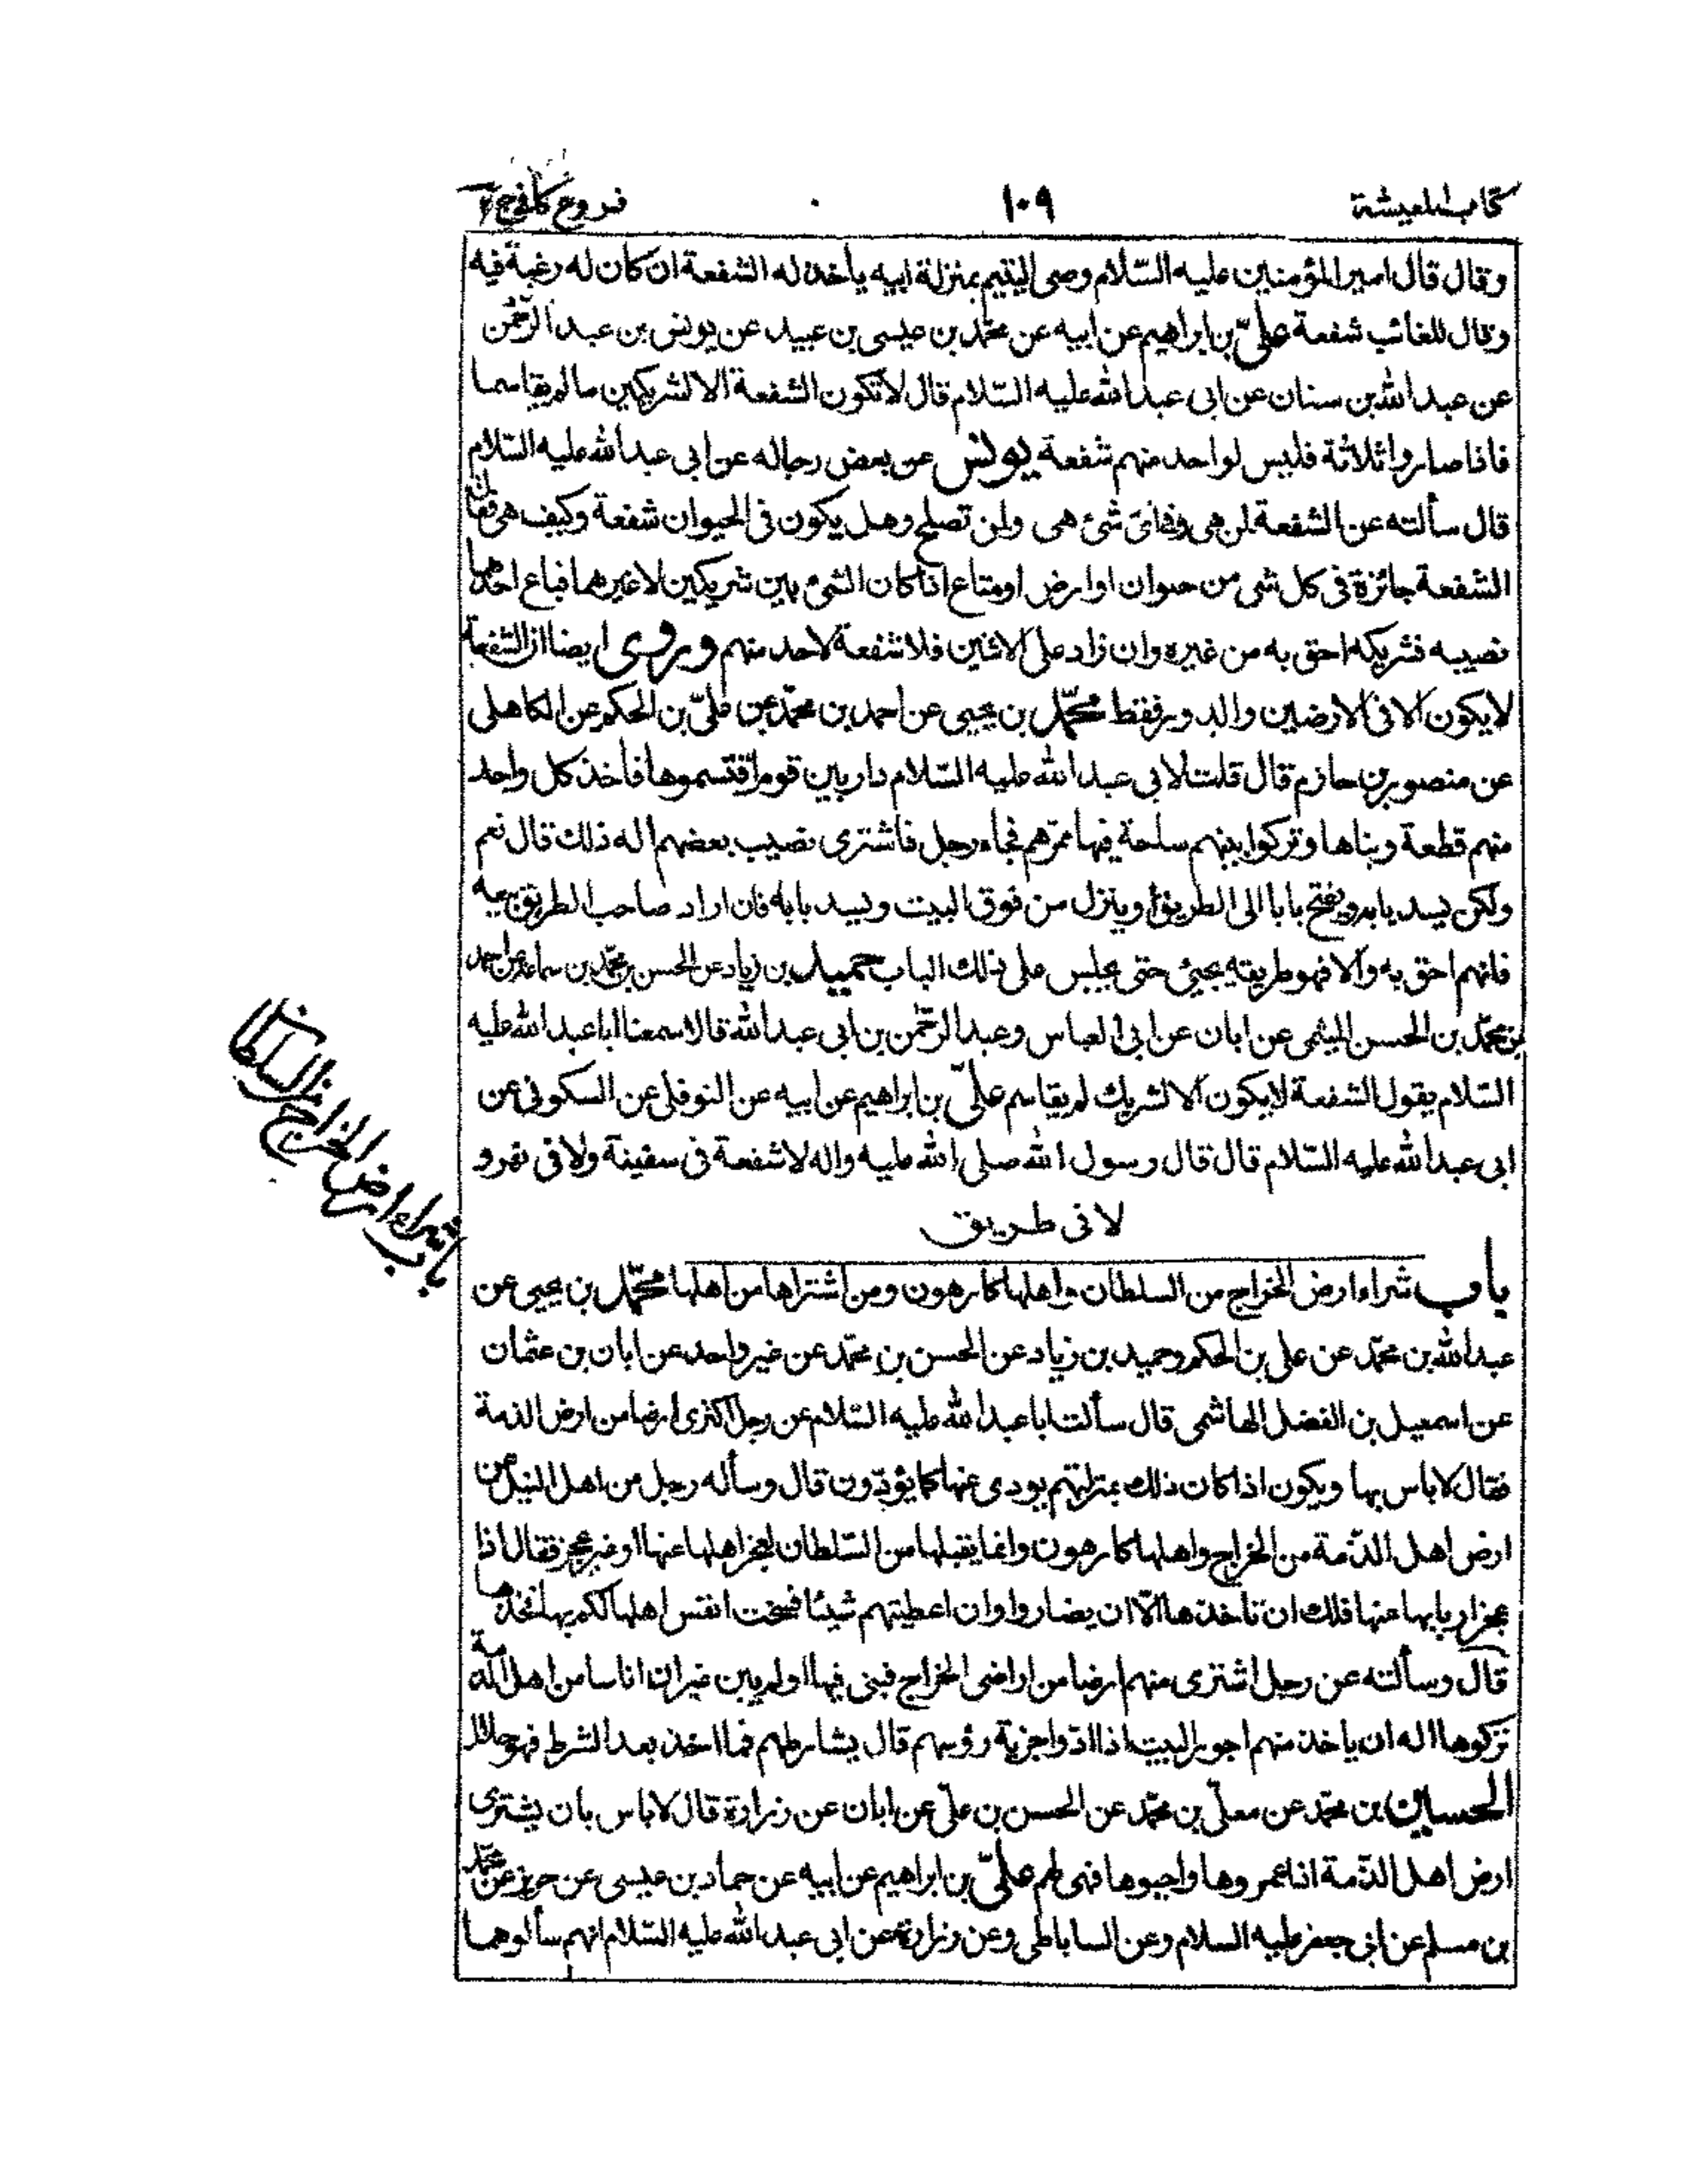 كتاب المعيشة ١٠٩ فروع كافي ج ٢
وقال قال امير المؤمنين عليه السّلام وصى اليتيم بمنزلة ابيه ياخذ له الشفعة ان كان له رغبة فيه
وقال للغائب شفعة علىّ بن ابراهيم عن ابيه عن محمّد بن عيسى بن عبيد عن يونس بن عبد الرّحمن
عن عبد الله بن سنان عن ابى عبد الله عليه السّلام قال لا تكون الشفعة الا لشريكين ما لم يقاسما
فاذا صاروا ثلاثة فليس لواحد منهم شفعة يونس عن بعض رجاله عن ابى عبد الله عليه السّلام
قال سألته عن الشفعة لمن هى وفى اىّ شئ هى ولمن تصلح وهل يكون فى الحيوان شفعة وكيف هى فقال
الشفعة جائزة فى كل شئ من حيوان او ارض او متاع اذا كان الشئ بين شريكين لا غيرهما فباع احدهما
نصيبه فشريكه احق به من غيره وان زاد على الاثنين فلا شفعة لاحد منهم وروى ايضا ان الشفعة
لا يكون الا فى الارضين والدور فقط محمّد بن يحيى عن احمد بن محمّد عن علىّ بن الحكم عن الكاهلى
عن منصور بن حازم قال قلت لابى عبد الله عليه السّلام دار بين قوم اقتسموها فاخذ كل واحد
منهم قطعة وبناها وتركوا بينهم ساحة فيها ممرّهم فجاء رجل فاشترى نصيب بعضهم اله ذلك قال نعم
ولكن يسد بابه ويفتح بابا الى الطريق او ينزل من فوق البيت ويسد بابه فان اراد صاحب الطريق بيعه
فانهم احق به والا فهو طريقه يجئ حتى يجلس على ذلك الباب حميد بن زياد عن الحسن بن محمّد بن سماعة عن احمد
بن محمّد بن الحسن الميثمى عن ابان عن ابى العباس وعبد الرّحمن بن ابى عبد الله قالا سمعنا ابا عبد الله عليه
السّلام يقول الشفعة لا يكون الا لشريك لم يقاسم علىّ بن ابراهيم عن ابيه عن النوفلى عن السكونى عن
ابى عبد الله عليه السّلام قال قال رسول الله صلى الله عليه واله لا شفعة فى سفينة ولا فى نهر و
لا فى طريق
باب شراء ارض الخراج من السلطان
باب شراء ارض الخراج من السلطان واهلها كارهون ومن اشتراها من اهلها محمّد بن يحيى عن
عبد الله بن محمّد عن على بن الحكم وحميد بن زياد عن الحسن بن محمّد عن غير واحد عن ابان بن عثمان
عن اسمعيل بن الفضل الهاشمى قال سألت ابا عبد الله عليه السّلام عن رجل اكترى ارضا من ارض الذمة
فقال لا باس بها ويكون اذا كان ذلك بمنزلتهم يودى عنها كما يؤدّون قال وسأله رجل من اهل النيل عن
ارض اهل الذّمة من الخراج واهلها كارهون وانما يقبلها من السّلطان لعجز اهلها عنها او غير عجز فقال اذا
عجز اربابها عنها فلك ان تاخذها الّا ان يضاروا وان اعطيتهم شيئا فسخت انفس اهلها لكم بها فخذها
قال وسألته عن رجل اشترى منهم ارضا من اراضى الخراج فبنى فيها او لم يبن غير ان اناسا من اهل الذمة
نزلوها اله ان ياخذ منهم اجور البيت اذا ادّوا جزية رؤسهم قال يشارطهم فما اخذ بعد الشرط فهو حلال
الحسين بن محمّد عن معلّى بن محمّد عن الحسن بن علىّ عن ابان عن زرارة قال لا باس بان يشترى
ارض اهل الذّمة اذا عمروها واحيوها فهى لهم علىّ بن ابراهيم عن ابيه عن حماد بن عيسى عن حريز عن محمّد
بن مسلم عن ابى جعفر عليه السلام وعن الساباطى وعن زرارة عن ابى عبد الله عليه السّلام انهم سألوهما